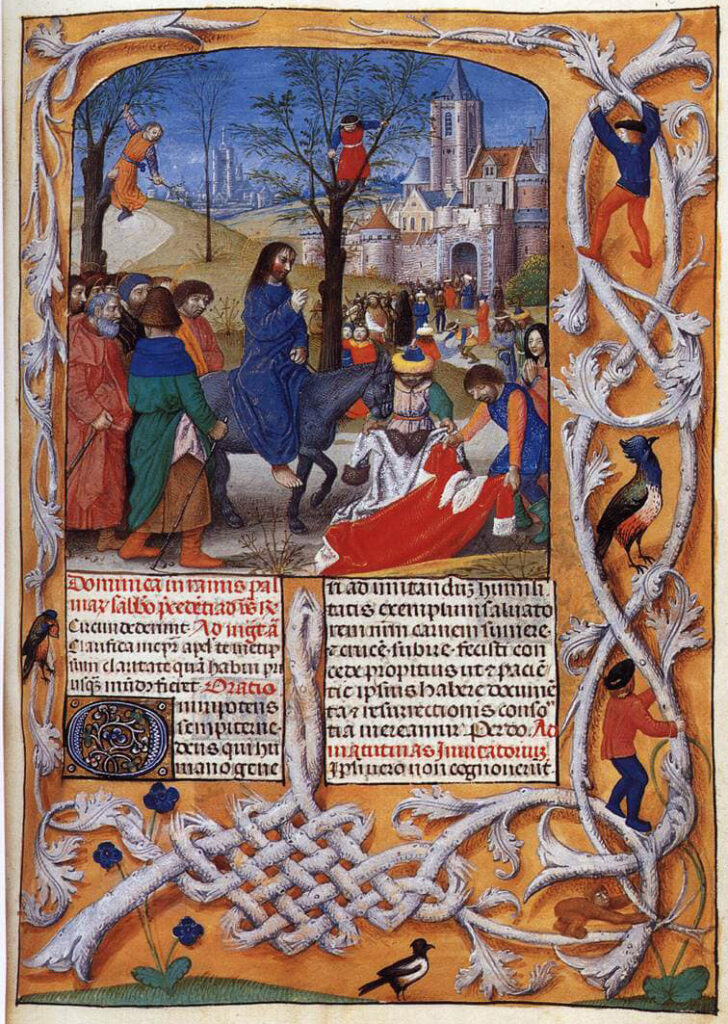 Dominica in ramis pal
mar sabbo p̄cedēti ad
Circumdederunt. Ad mgt̄ a
Clarifica me pr̄ apd̄ te metip
sum claritate quā habui pri
usq̄ mūdꝰ fieret. Oratio
Omnipotens
sempiterne
deus qui hu
mano gene
ri ad imitandū humili
tatis exemplum saluato
rem nrm̄ carnem sumere
⁊ crucē subire fecisti con
cede propitius ut ⁊ paciē
tie ipsius habere documē
ta ⁊ resurrectionis conso
tia mereamur. Per do. Ad
matutinas Inuitatoriuz
Ipsi uero non cognouerunt